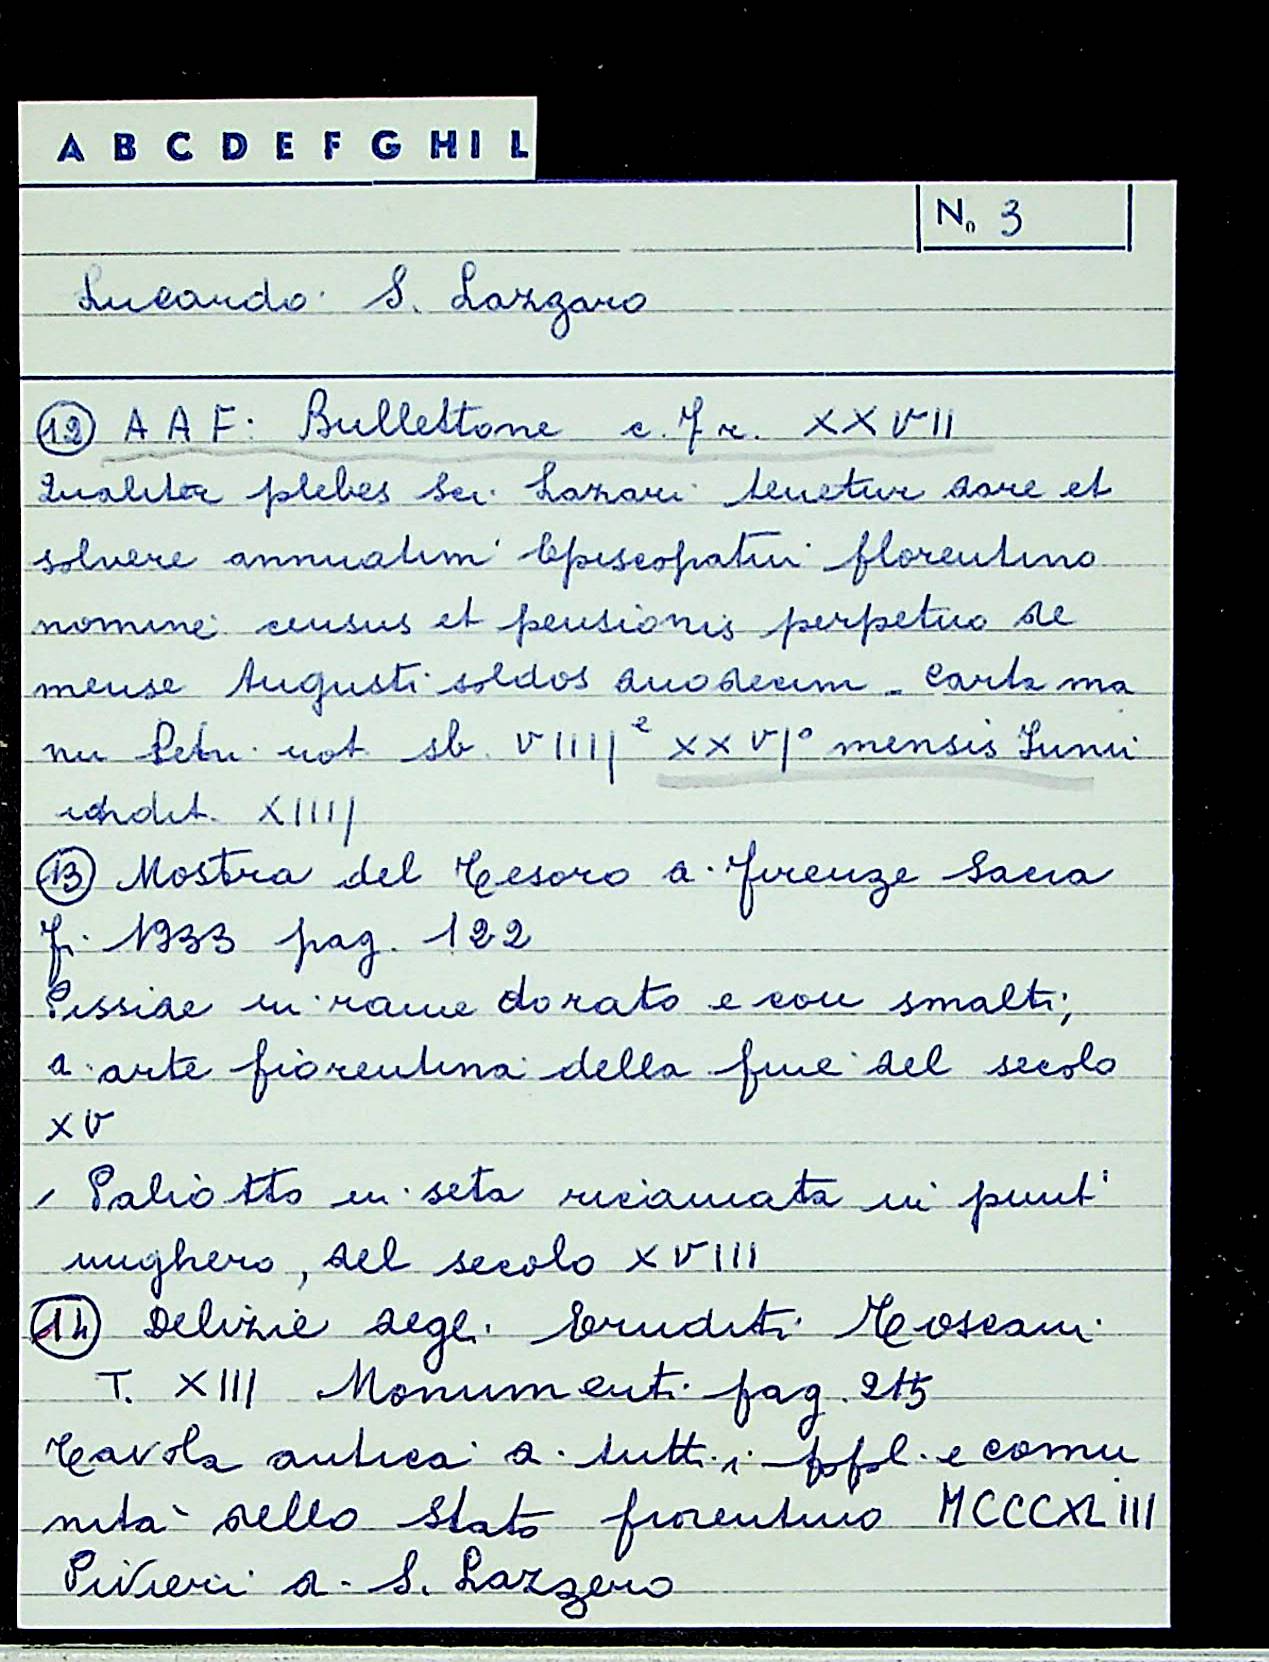 A B C D E F G H I L
N. 3
Lucardo S. Lazzaro
12 A A F: Bullettone c. 7 r. XXVII
Qualiter plebes Sci. Lazari tenetur dare et
solvere annuatim Episcopatui florentino
nomine census et pensionis perpetuo de
mense Augusti soldos duodecim - carta ma
nu Petri not. sb. VIIIJ e XXVJº mensis Iunii
indit. XIIIJ
13 Mostra del Tesoro di Firenze Sacra
Fi. 1933 pag. 122
Pisside in rame dorato e con smalti;
di arte fiorentina della fine del secolo
XV
Paliotto in seta ricamata in punt
unghero, del secolo XVIII
14 Delizie degli Eruditi Toscani
T. XIII Monumenti pag. 215
Tavola antica di tutti i ppl. e comu
nità dello Stato fiorentino MCCCXLIII
Pivieri di S. Lazzero